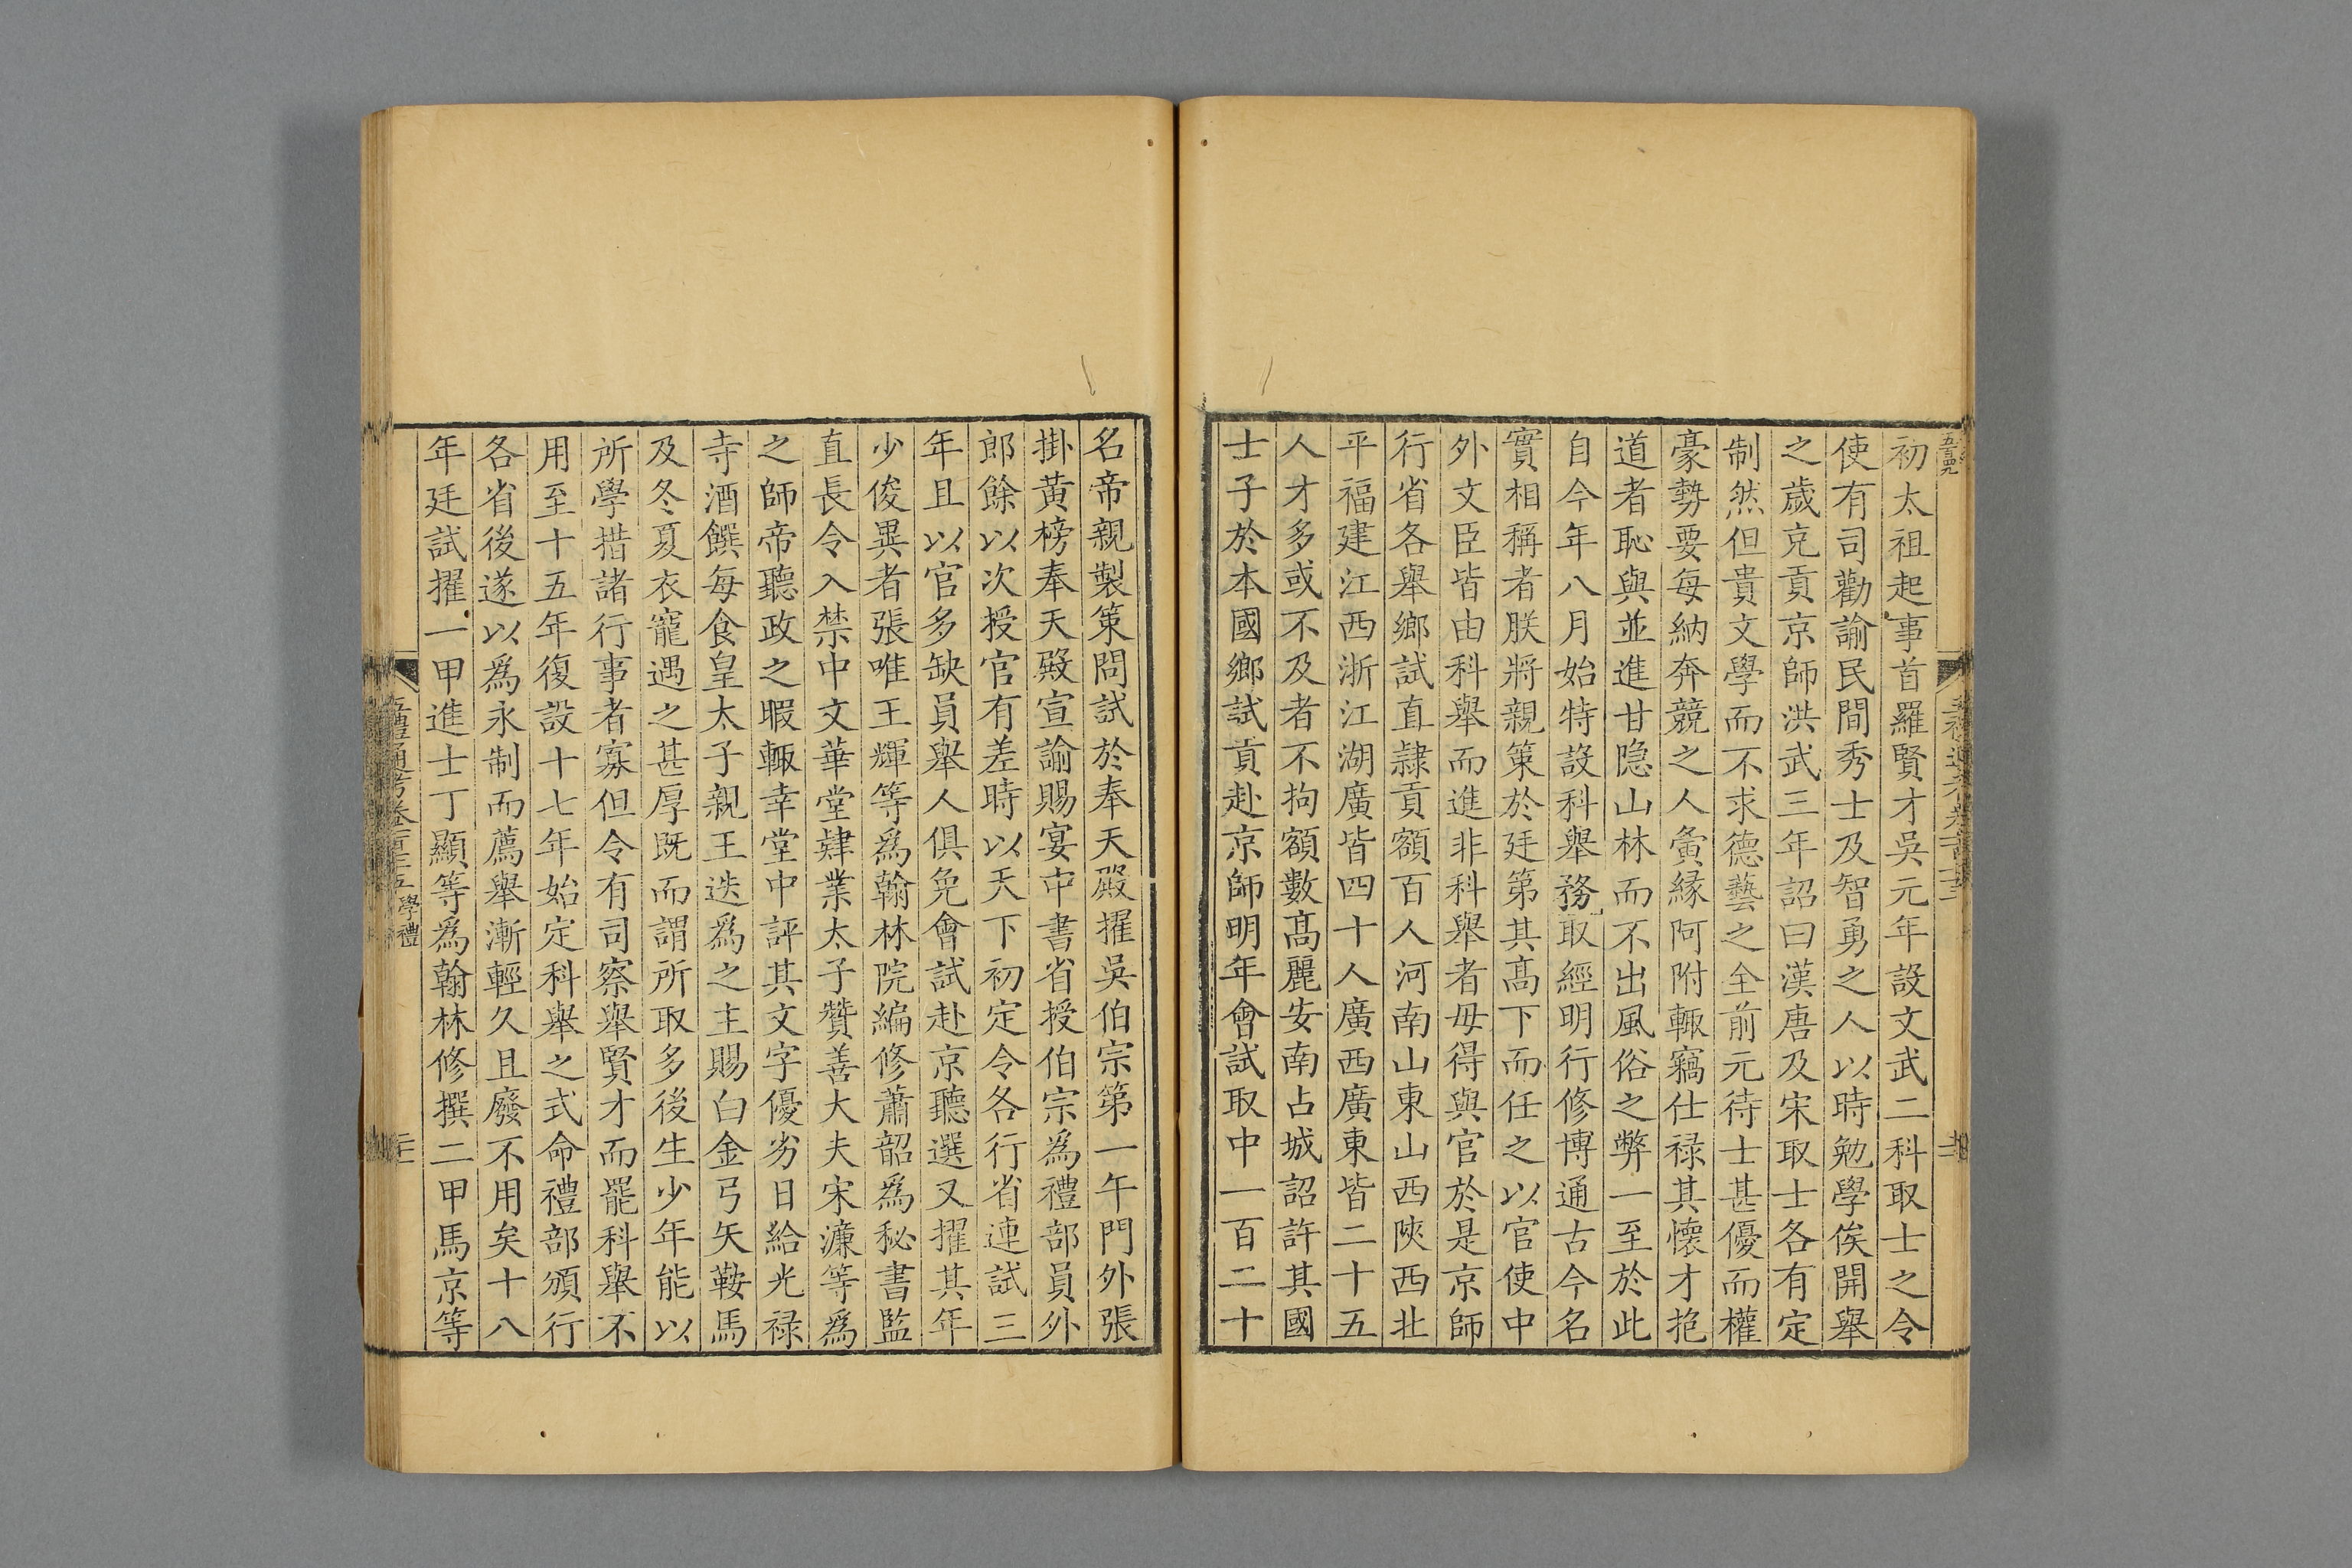 初太祖起事首羅賢才吳元年設文武二科取士之令
使有司勸諭民間秀士及智勇之人以時勉學俟開舉
之歲充貢京師洪武三年詔曰漢唐及宋取士各有定
制然但貴文學而不求德藝之全前元待士甚優而權
豪勢要每納奔競之人夤緣阿附輒竊仕祿其懷才抱
道者恥與並進甘隱山林而不出風俗之弊一至於此
自今年八月始特設科舉務取經明行修博通古今名
實相稱者朕將親策於廷第其高下而任之以官使中
外文臣皆由科舉而進非科舉者毋得與官於是京師
行省各舉鄉試直隸貢額百人河南山東山西陝西北
平福建江西浙江湖廣皆四十人廣西廣東皆二十五
人才多或不及者不拘額數高麗安南占城詔許其國
士子於本國鄉試貢赴京師明年會試取中一百二十
名帝親製策問試於奉天殿擢吳伯宗第一午門外張
掛黃榜奉天殿宣諭賜宴中書省授伯宗爲禮部員外
郎餘以次授官有差時以天下初定令各行省連試三
年且以官多缺員舉人俱免會試赴京聽選又擢其年
少俊異者張唯王輝等爲翰林院編修蕭韶爲秘書監
直長令入禁中文華堂肄業太子贊善大夫宋濂等爲
之師帝聽政之暇輒幸堂中評其文字優劣日給光祿
寺酒饌每食皇太子親王迭爲之主賜白金弓矢鞍馬
及冬夏衣寵遇之甚厚既而謂所取多後生少年能以
所學措諸行事者寡但令有司察舉賢才而罷科舉不
用至十五年復設十七年始定科舉之式命禮部頒行
各省後遂以爲永制而薦舉漸輕久且廢不用矣十八
年廷試擢一甲進士丁顯等爲翰林修撰二甲馬京等
五禮通考卷一百七十五 學禮